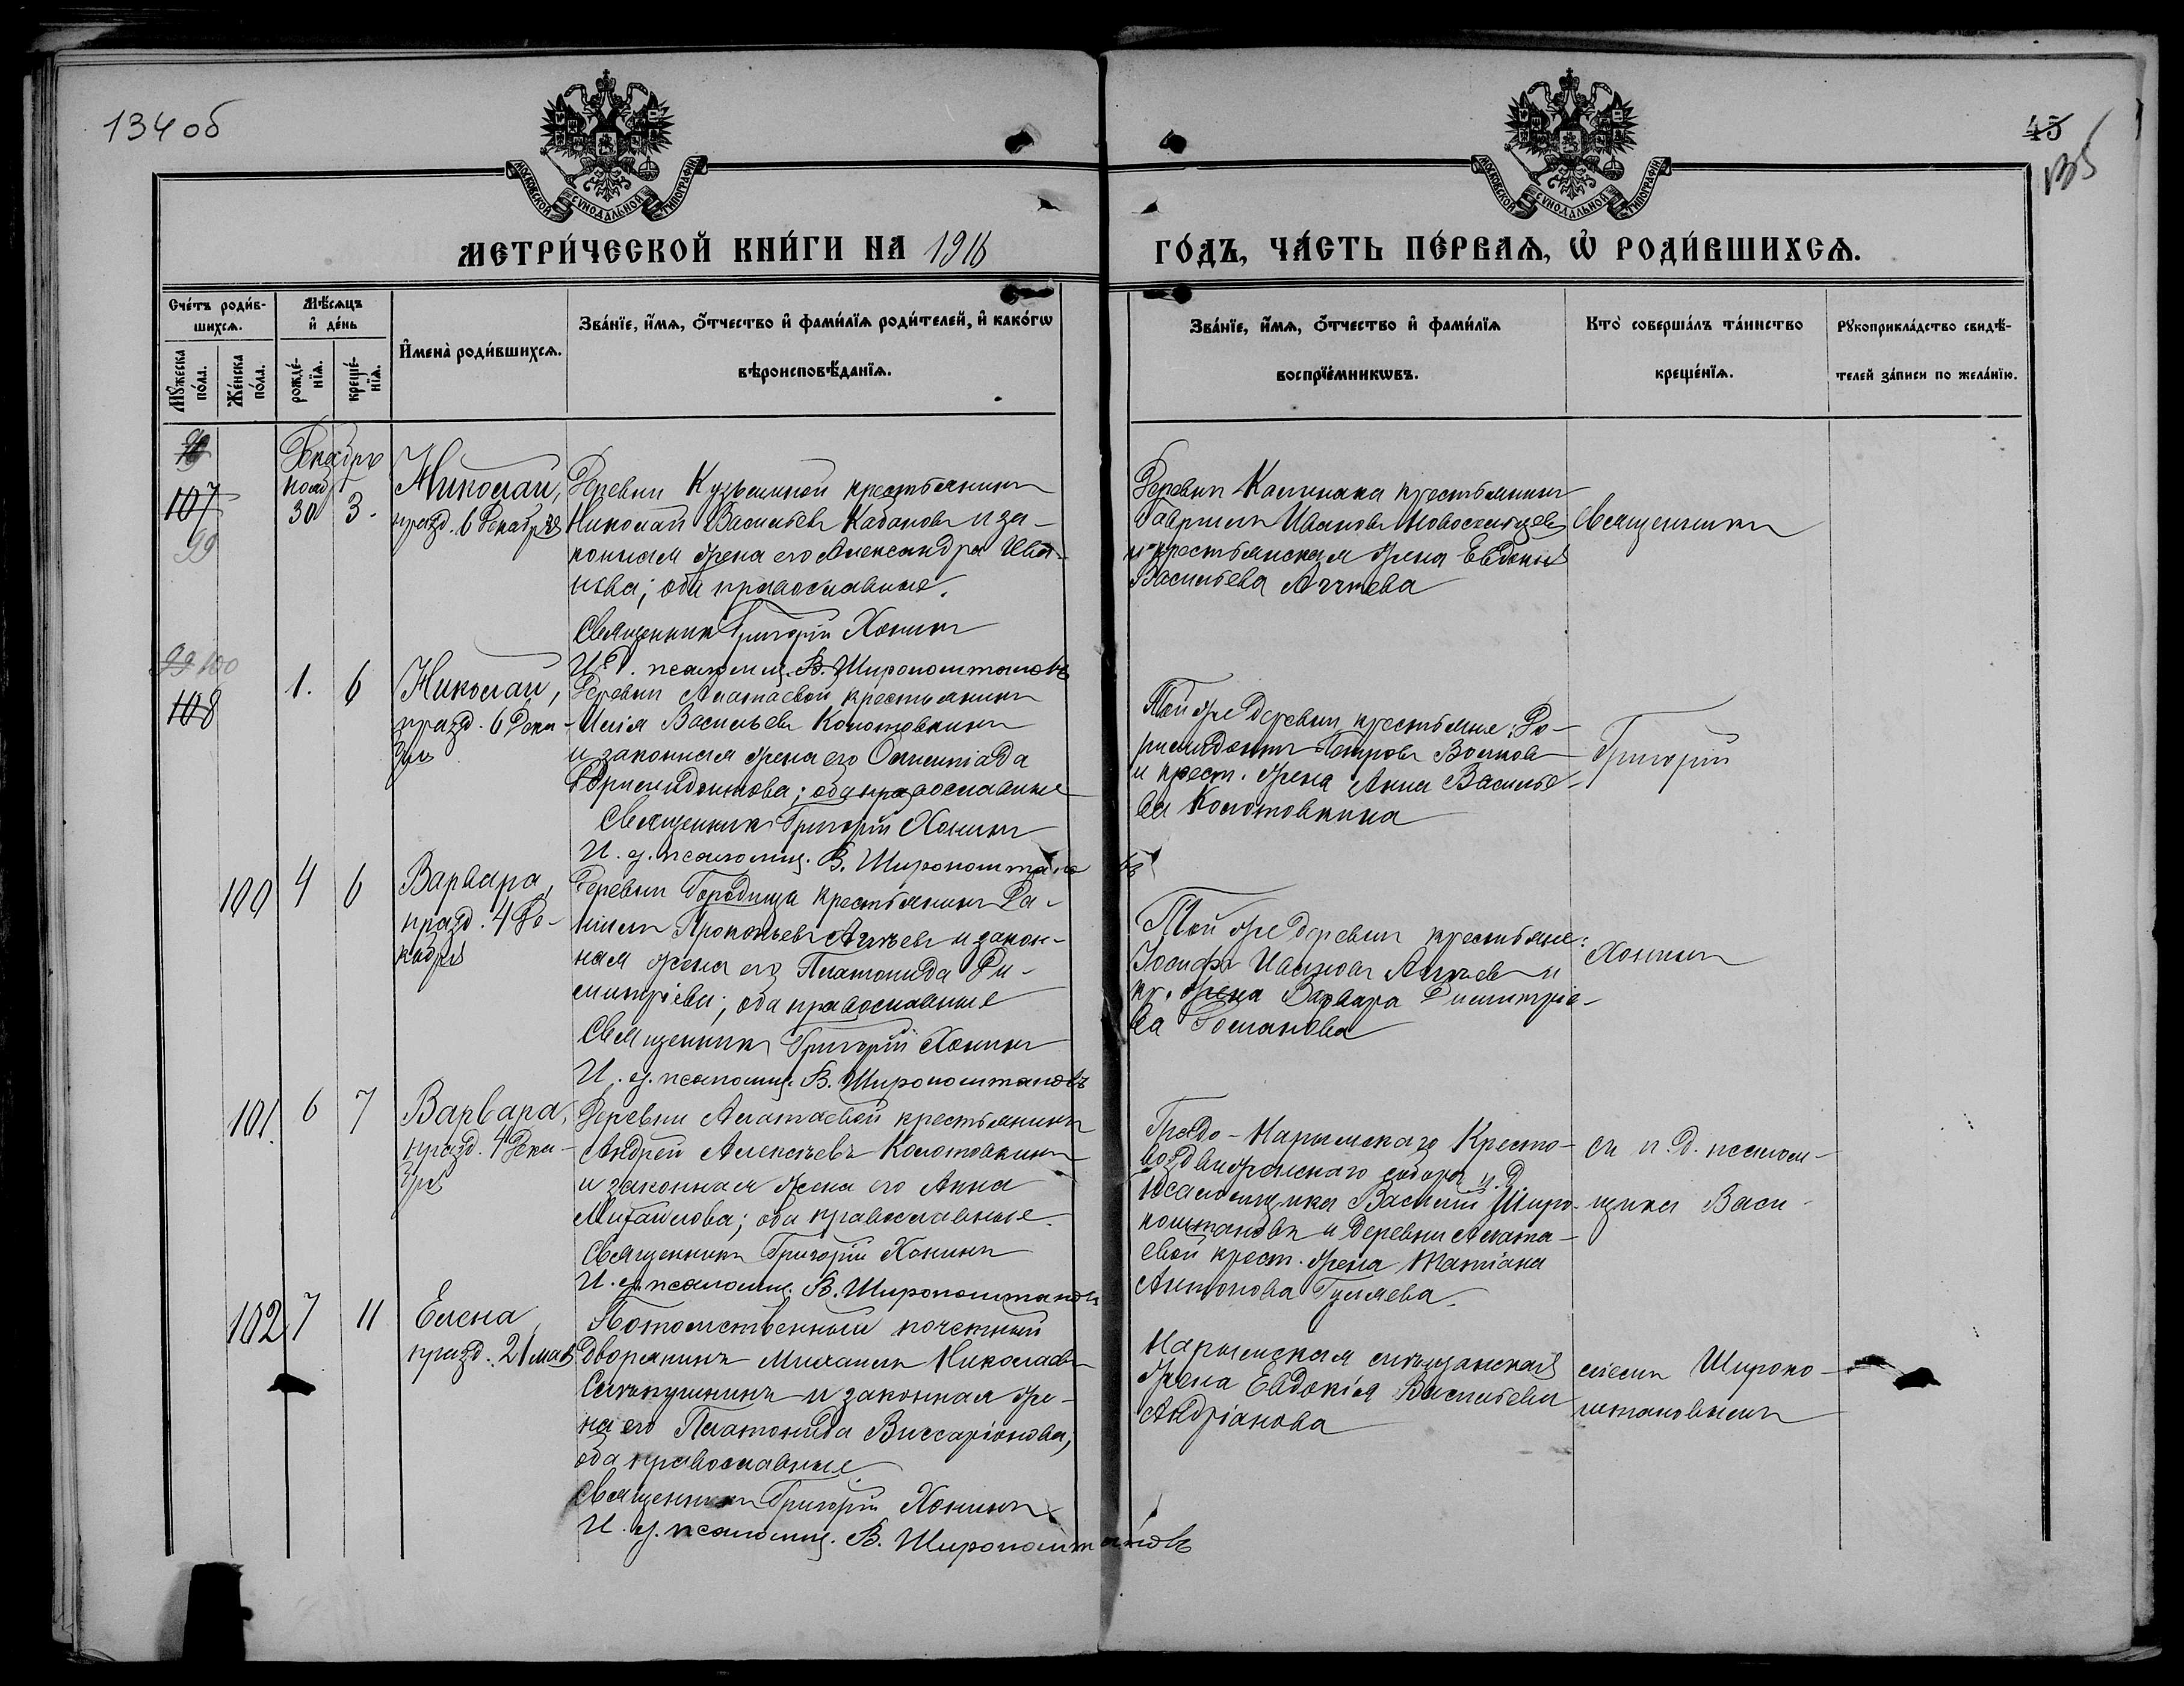 134 об
45
135
МОСКОВСКОЙ СѴНОДАЛЬНОЙ ТИПОГРАФІИ
МОСКОВСКОЙ СѴНОДАЛЬНОЙ ТИПОГРАФІИ
МЕТРИ́ЧЕСКОЙ КНИ́ГИ НА 1916
ГО́ДЪ, ЧА́СТЬ ПЕ́РВАѦ, Ѡ РОДИ́ВШИХСѦ.
Сче́тъ роди́в-
шихсѧ.
Мꙋ́жеска по́ла.
Же́нска по́ла.
Мѣ́сѧцъ
и де́нь
рожде́-
нїѧ.
креще́-
нїѧ.
Имена̀ роди́вшихсѧ.
Зва́нїе, и́мѧ, ѻ́тчество и фами́лїѧ роди́телей, и како́гѡ
вѣроисповѣ́данїѧ.
Зва́нїе, и́мѧ, ѻ́тчество и фами́лїѧ
воспрїе́мникѡвъ.
Кто̀ соверша́лъ та́инство
креще́нїѧ.
Рꙋкоприкла́дство свидѣ́-
телей за́писи по жела́нїю.
107
99
Декабрь
нояб
30 3.
Николай,
празд. 6 Декабря
Деревни Кузьминой крестьянинъ
Николай Васильевъ Кабановъ и за-
конная жена его Александра Ива-
нова; оба православные.
Священникъ Григорій Хонинъ
И. д. псаломщ. В. Широкоштановъ
Деревни крестьянинъ
Гавріилъ Ивановъ
и крестьянская жена Евдокія
Васильева Ачгиева
Священникъ
99 100
108
1. 6
Николай,
празд. 6 Дека-
бря
Деревни Алатаевой крестьянинъ
Илія Васильевъ Колотовкинъ
и законная жена его Олимпіада
оба православные
Священникъ Григорій Хонинъ
И. д. псаломщ. В. Широкоштановъ
Той же деревни крестьяне:
Петровъ Волковъ
и крест. жена Анна Василье-
ва Колотовкина
Григорій
100
4 6
Варвара,
празд. 4 Де-
кабря
Деревни Городища крестьянинъ Да-
ніилъ Прокопьевъ и закон-
ная жена его Платонида Ди-
митріева; оба православные
Священникъ Григорій Хонинъ
И. д. псаломщ. В. Широкоштановъ
Той же деревни крестьяне:
Іосифъ Ивановъ и
кр. жена Варвара Димитріе-
ва Романова
Хонинъ
101.
6 7
Варвара,
празд. 4 Дека-
бря
Деревни Алатаевой крестьянинъ
Андрей Алексѣевъ Колотовкинъ
и законная жена его Анна
Михайлова; оба православные.
Священникъ Григорій Хонинъ
И. д. псаломщ. В. Широкоштановъ
Градо-Нарымскаго Кресто-
воздвиженскаго собора и. д.
псаломщика Василій Широ-
коштановъ и деревни Алата-
евой крест. жена Татіана
Антонова Гуляева.
съ и. д. псалом-
щика Васи-
102
7 11
Елена
празд. 21 мая
Потомственный почетный
Дворянинъ Михаилъ Николаевъ
и законная же-
на его Платонида Виссаріонова;
оба православные.
Священникъ Григорій Хонинъ
И. д. псаломщ. В. Широкоштановъ
Нарымская мѣщанская
жена Евдокія Васильева
Андріанова
ліемъ Широко-
штановымъ